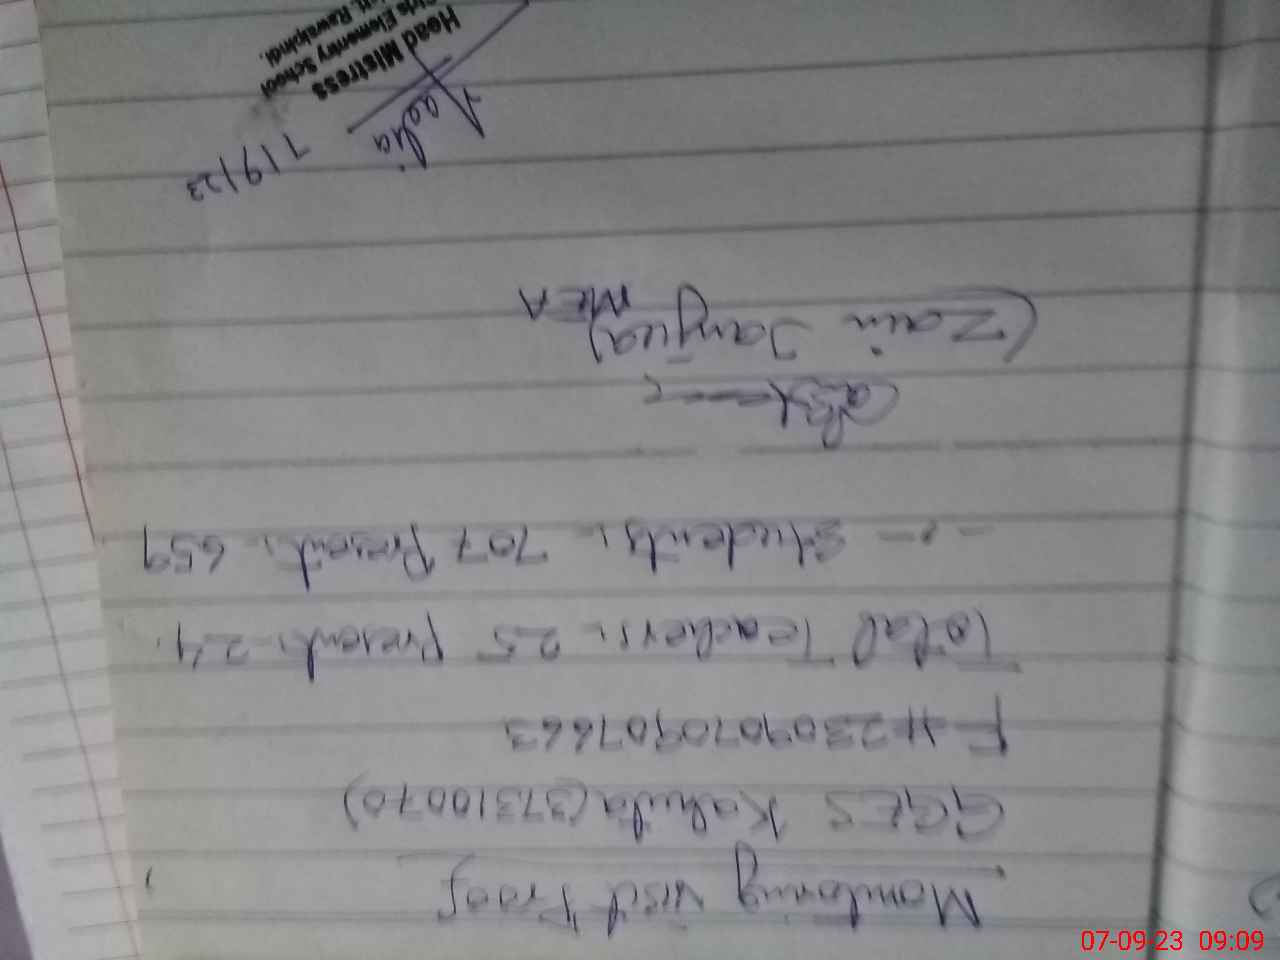 Monitoring Visit Proof
GGES Kahuta (37310070)
F# 2309070907663
Total Teachers: 25 Present: 24
-"- Students: 707 Present: 659
(Zain Janjua)
MEA
Nadia
7/9/23
Head Mistress
Girls Elementry School
Rawalpindi.
07-09-23 09:09